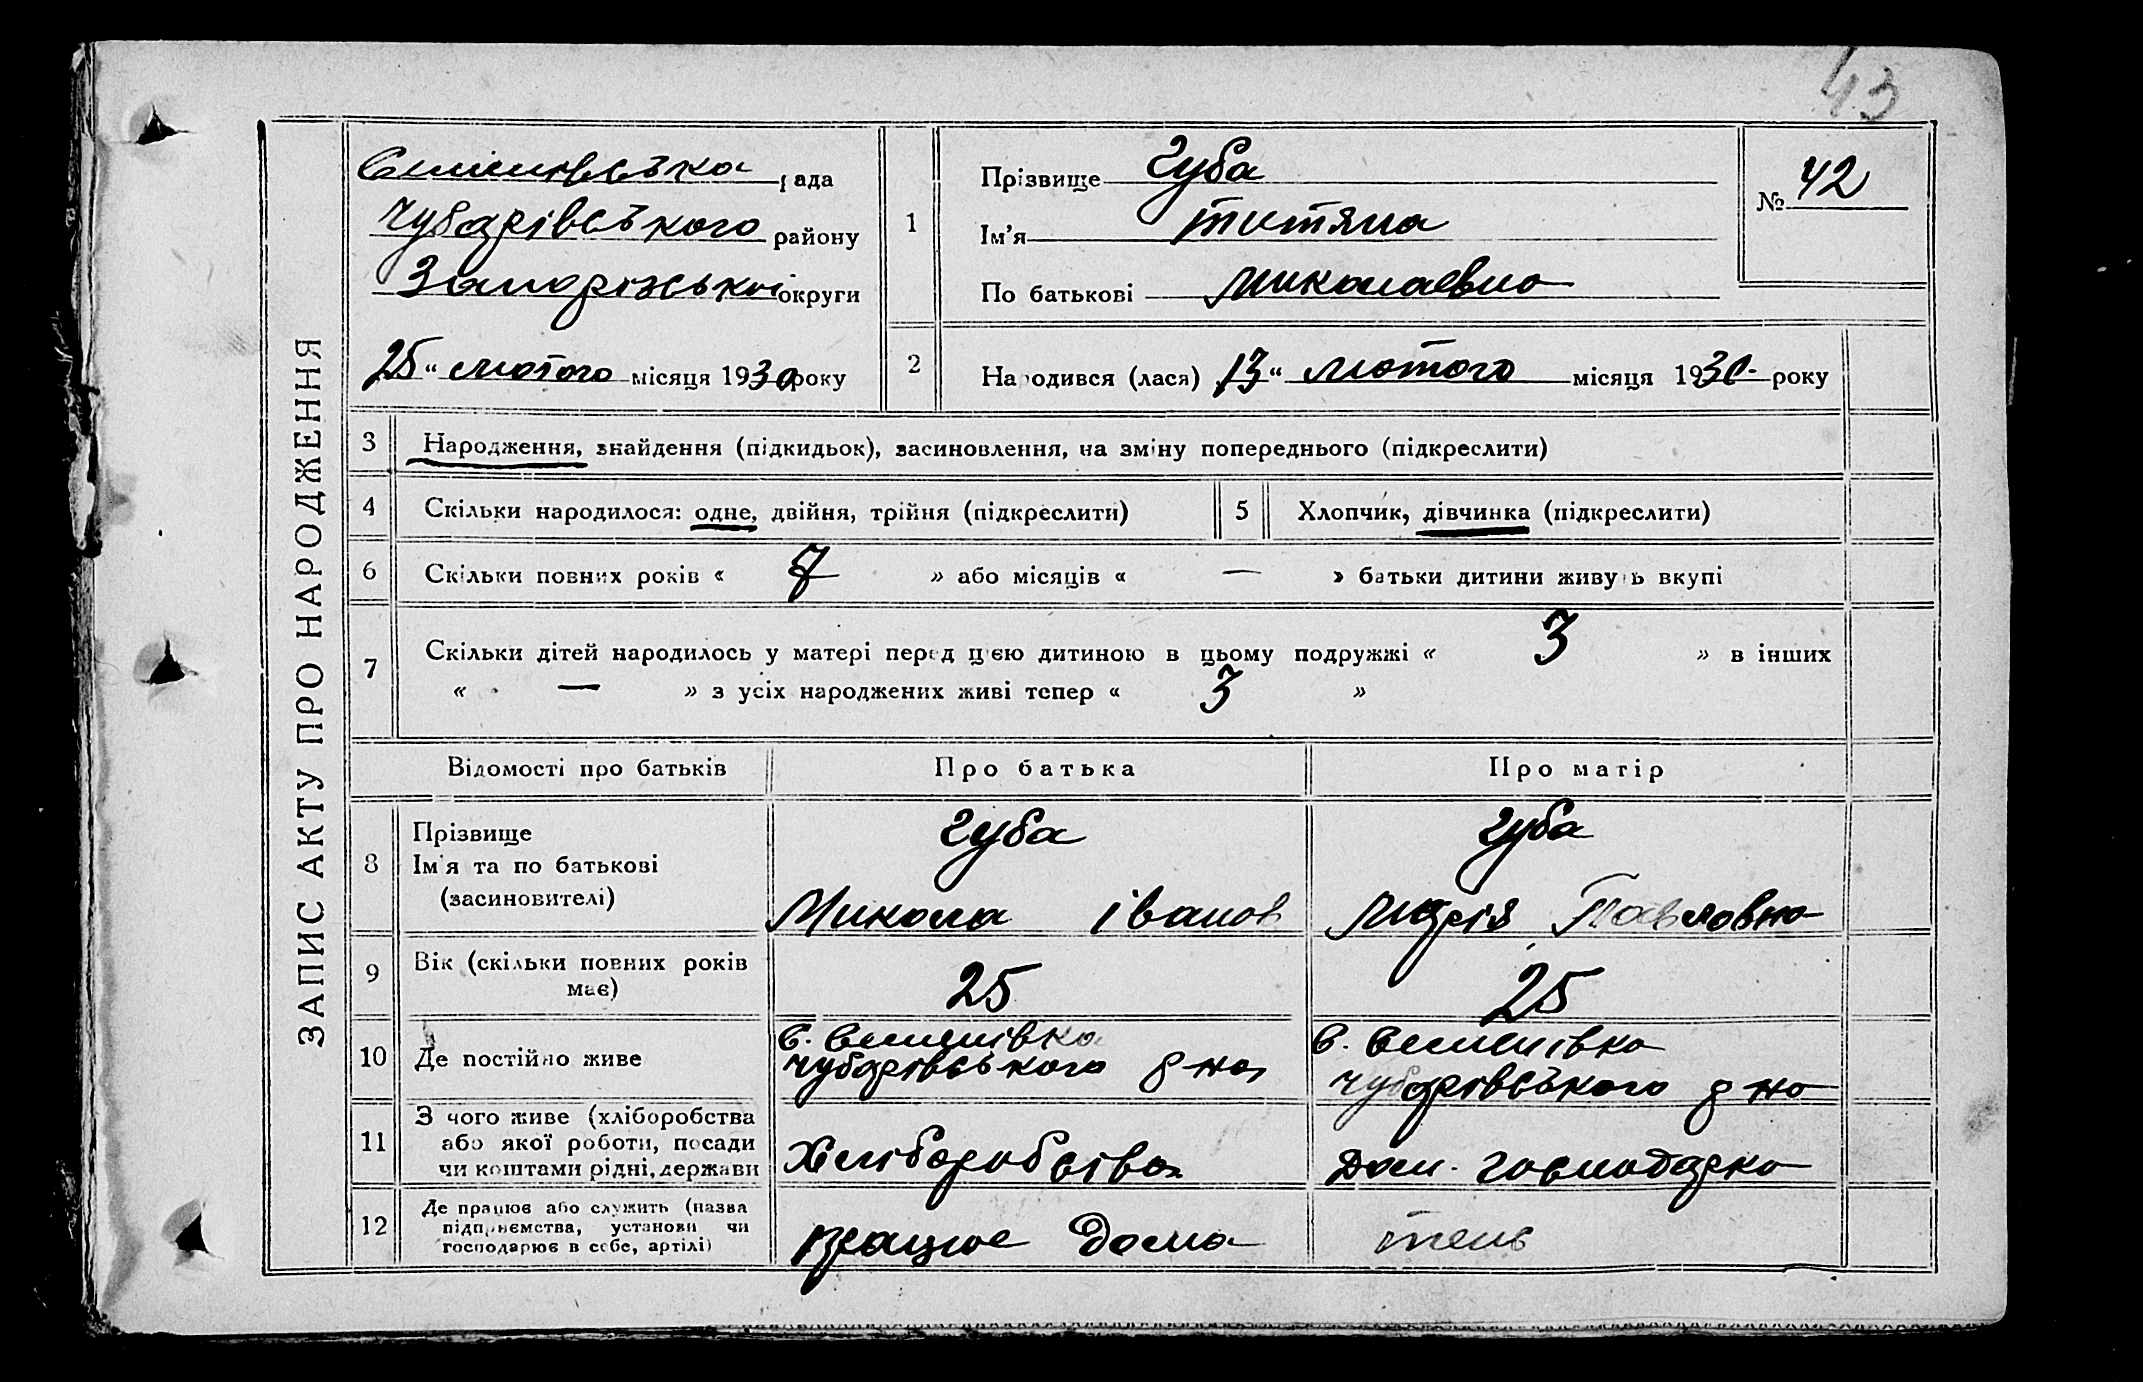 43
ЗАПИС АКТУ ПРО НАРОДЖЕННЯ
рада
Чубарівського району
Запорізької округи
25 " лютого місяця 1930 року
1
Прізвище Губа
Ім'я Титяна
По батькові Миколаевна
№ 42
2
Народився (лася) 13 " лютого місяця 1930 року
3 Народження, знайдення (підкидьок), засиновлення, на зміну попереднього (підкреслити)
4 Скільки народилося: одне, двійня, трійня (підкреслити) 5 Хлопчик, дівчинка (підкреслити)
6 Скільки повних років « 7 » або місяців « — » батьки дитини живуть вкупі
7 Скільки дітей народилось у матері перед цією дитиною в цьому подружжі « 3 » в інших
« — » з усіх народжених живі тепер « 3 »
Відомості про батьків Про батька Про матір
8 Прізвище
Ім'я та по батькові
(засиновителі)
Губа
Микола Іванов
Губа
Марія Павловна
9 Вік (скільки повних років
має)
25
25
10 Де постійно живе
с. Семенівка
Чубарівського р на
с. Семенівка
Чубарівського р на
11 З чого живе (хліборобства
або якої роботи, посади
чи коштами рідні, держави
Хліборобства
Дом. господарка
12 Де працює або служить (назва
підприємства, установи чи
господарює в себе, артілі)
працює дома
тежь